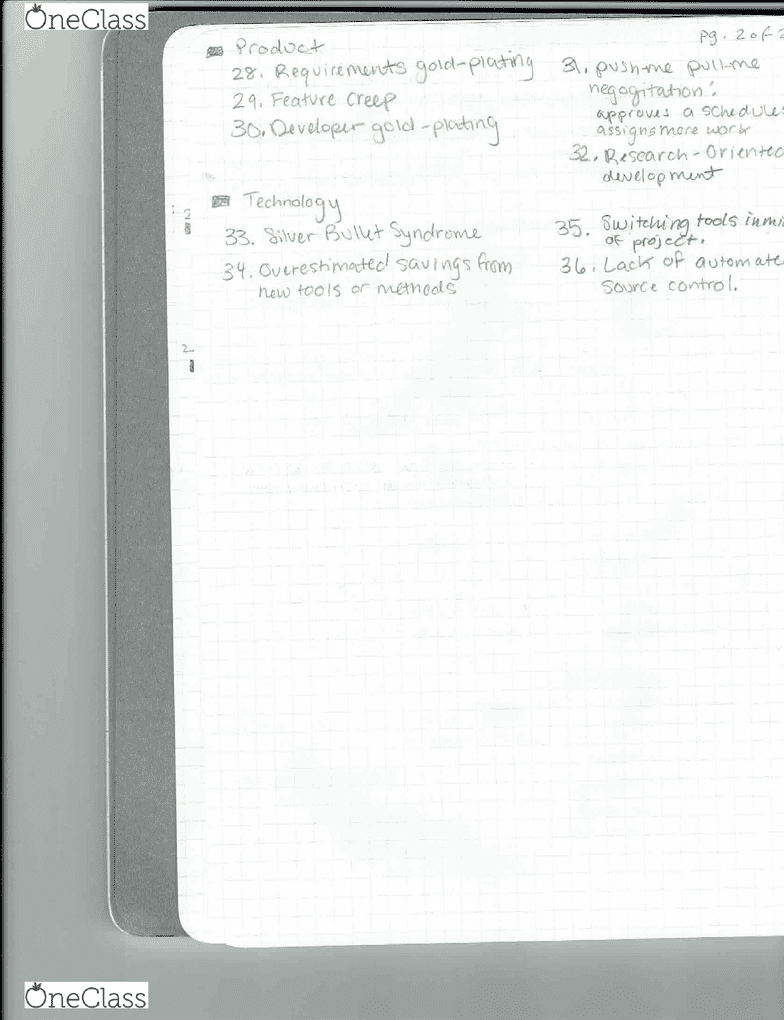 OneClass
pg. 2 of 2
Product
28. Requirements gold-plating
29. Feature Creep
30. Developer gold-plating
31. push-me pull-me
negogitation:
approves a schedule
assigns more work
32. Research-Oriented
development
Technology
33. Silver Bullet Syndrome
34. Overestimated savings from
new tools or methods
35. Switching tools in
of project.
36. Lack of automate
Source control.
2
2
OneClass